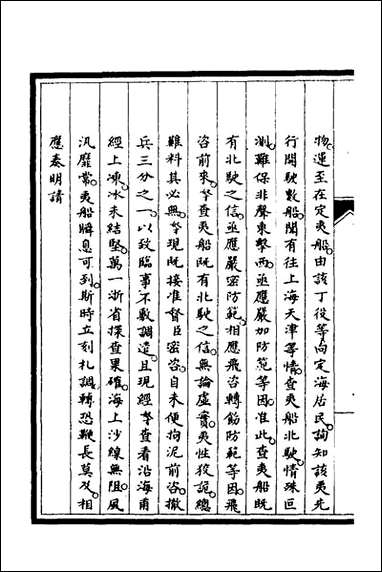 物運至在定夷船由該丁役等向定海居民詢知該夷先
行開駛數船聞有往上海天津等情查夷船北駛情殊叵
測難保非聲東擊西亟應嚴加防範等因准此查夷船既
有北駛之信亟應嚴密防範相應飛咨轉飭防範等因飛
咨前來本查夷船既有北駛之信無論虛實夷性狡詭總
難料其必無本現既接准督臣密咨自未便拘泥前咨撤
兵三分之一以致臨事不敷調遣且現經本查看沿海甫
經上凍冰未結堅萬一浙省探查果確海上沙線無阻風
汛靡常夷船瞬息可到斯時立刻札調轉恐鞭長莫及相
應奏明請